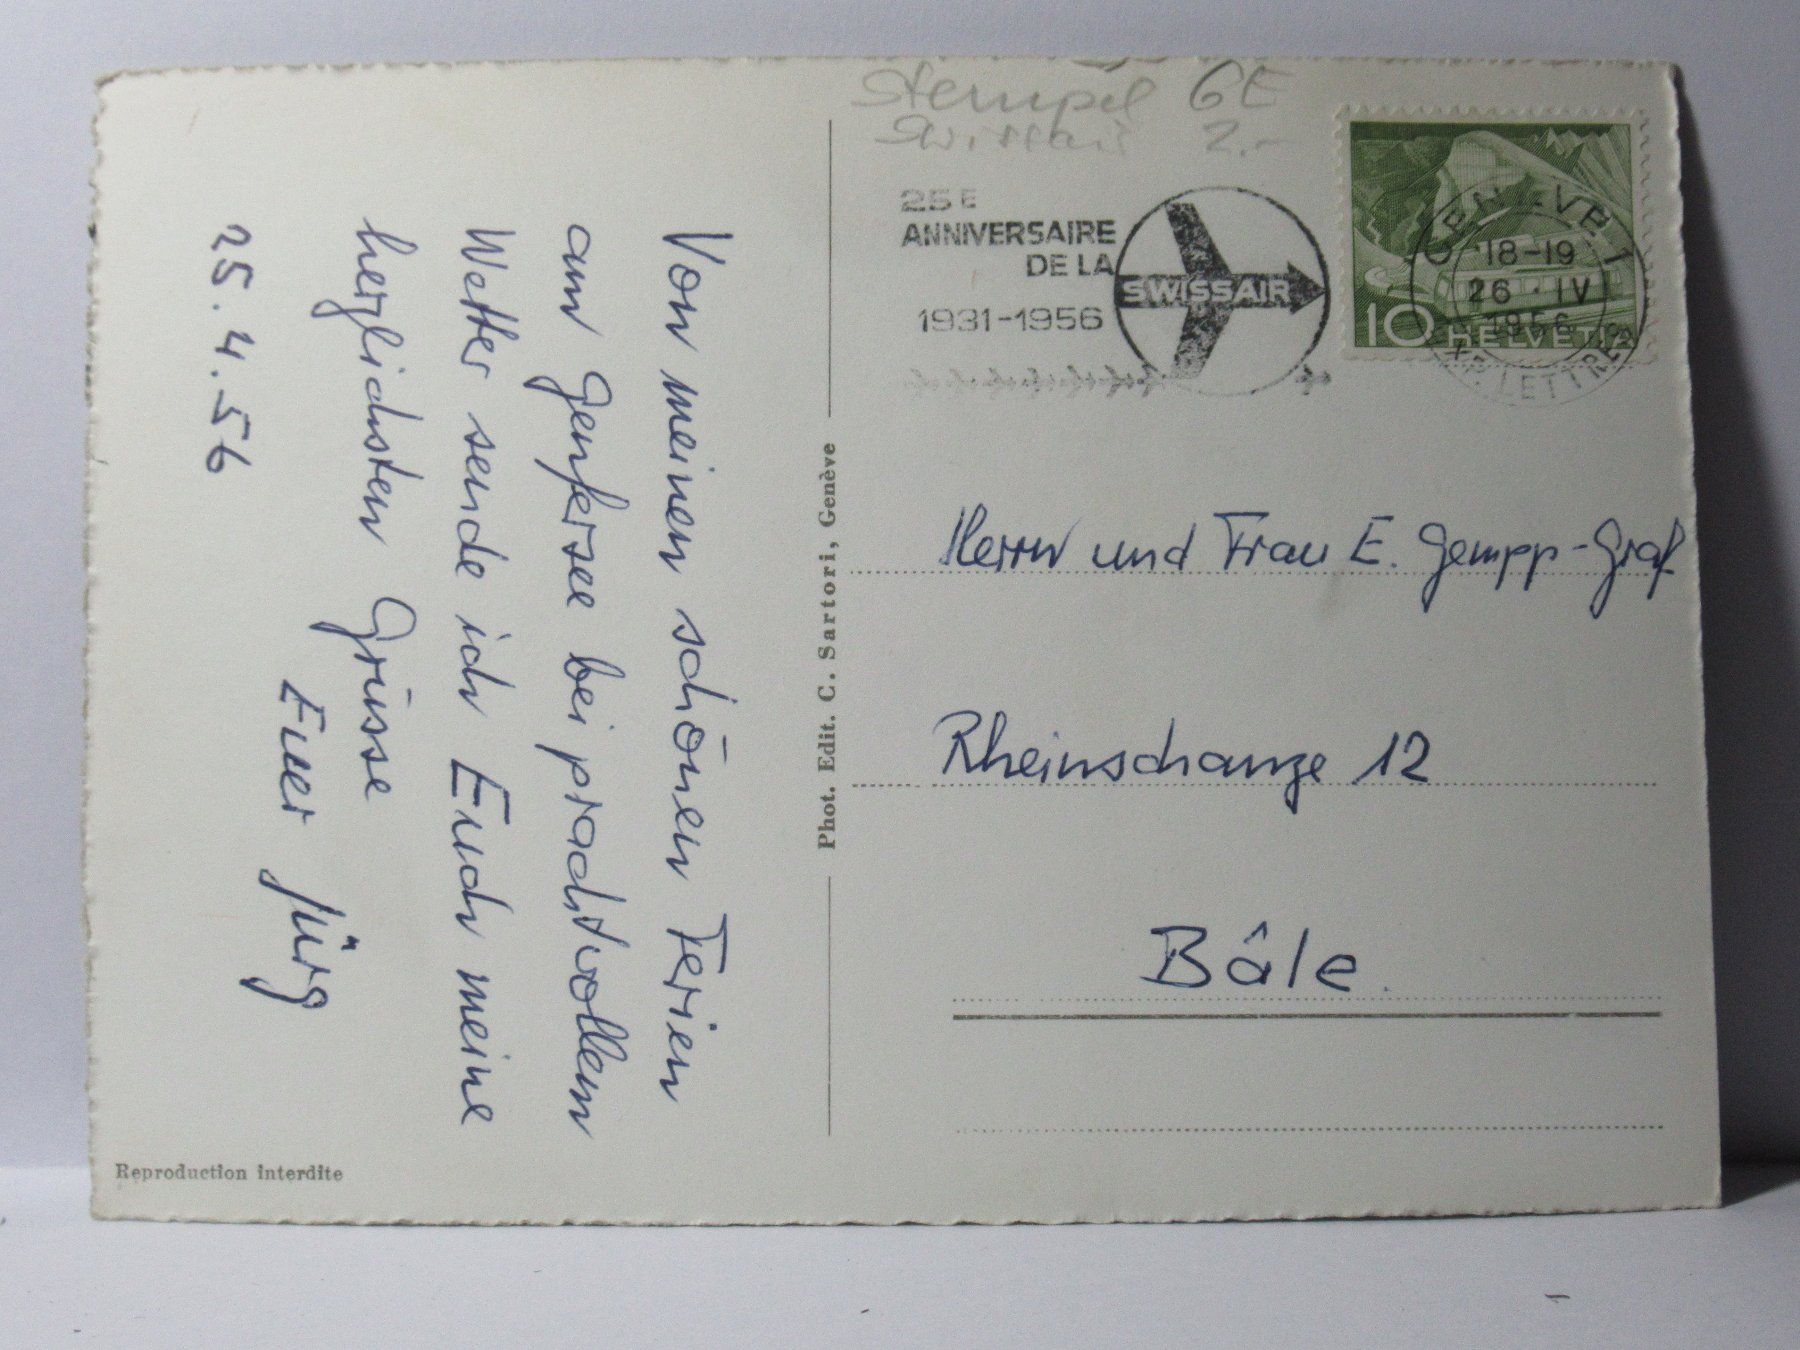 Stempel GE
Swissair 2.-
25E
ANNIVERSAIRE
DE LA
SWISSAIR
1931-1956
GENÈVE 1
18-19
26.IV
1956
EXP. LETTRES
10 HELVETIA
Von meinen schönen Ferien
am Genfersee bei prachtvollem
Wetter sende ich Euch meine
herzlichsten Grüsse
Euer Jürg
25.4.56
Phot. Edit. C. Sartori, Genève
Herrn und Frau E. Gempp-Graf
Rheinschanze 12
Bâle.
Reproduction interdite